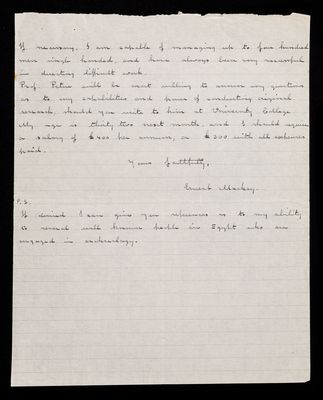 If necessary, I am capable of managing up to four hundred
men single handed, and have always been very successful
in directing difficult work.
Prof. Petrie will be most willing to answer any questions
as to my capabilities and power of conducting original
research, should you write to him at University College
My age is thirty two next month, and I should require
a salary of £400 per annum, or £300 with all expenses
paid.
Yours faithfully,
Ernest Mackay.
P.S.
If desired I can give you references as to my ability
to several well known people in Egypt who are
engaged in archaeology.